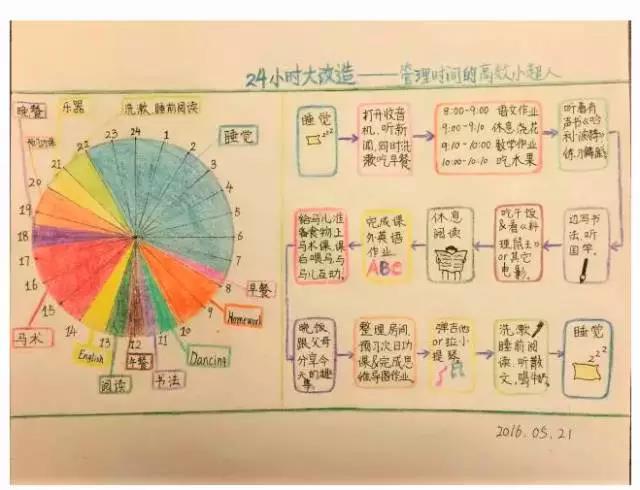 24小时大改造——管理时间的高效小超人
晚餐 乐器 洗漱、睡前阅读
预习功课
睡觉
24
1
2
3
4
5
6
7
8
9
10
11
12
13
14
15
16
17
18
19
20
21
22
23
早餐
Homework
Dancing
书法
午餐
阅读
English
马术
睡觉
zzz
打开收音
机、听新
闻,同时洗
漱吃早餐
8:00-9:00 语文作业
9:00-9:10 休息、浇花
9:10-10:00 数学作业
10:00-10:10 吃水果
听着有
声书《哈
利·波特》
练习舞蹈
边写书
法、听
国学。
吃午饭
&看《料
理鼠王》
or其它
电影。
休息
阅读
完成课
外英语
作业
ABC
给马儿准
备食物上
马术课、课
后喂马与
马儿互动。
晚饭
跟父母
分享今
天的趣
事。
整理房间、
预习次日功
课&完成思
维导图作业。
弹吉他
or拉小
提琴
洗漱、
睡前阅
读、听散
文,喝牛奶
睡觉
zzz
2016.05.21